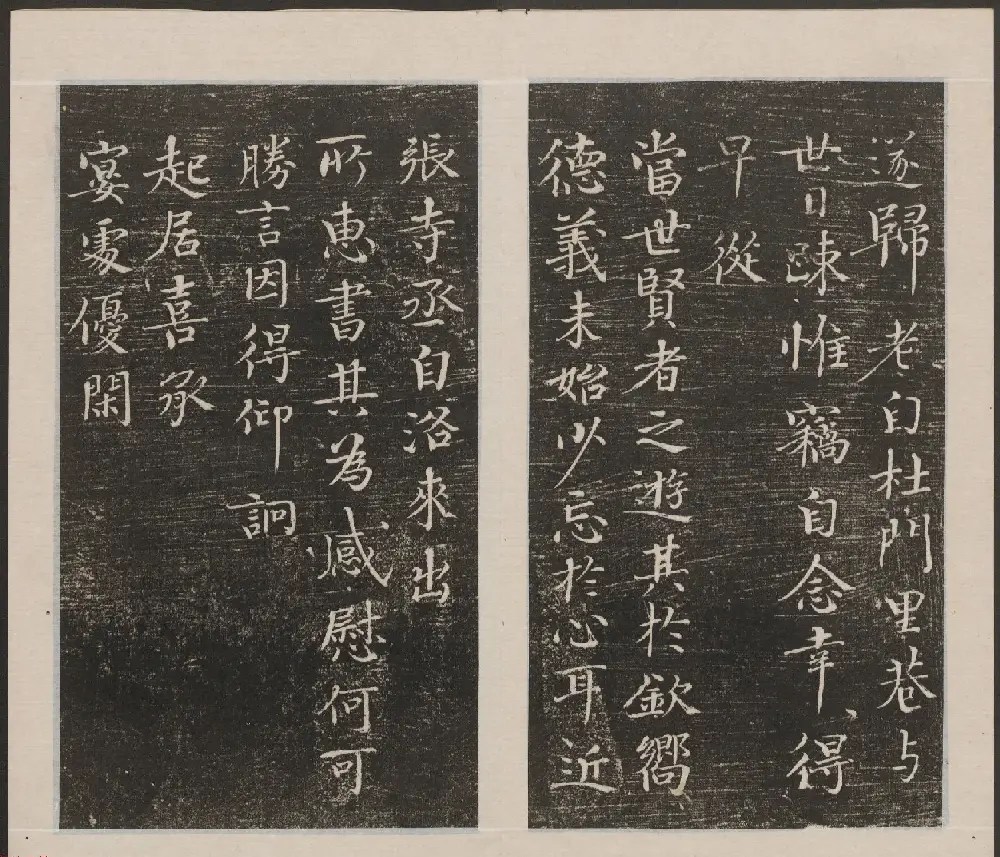 遂歸老自杜門里巷与
世日踈惟竊自念幸得
早從
當世賢者之遊其於欽嚮
德義未始少忘於心耳近
張寺丞自洛來出
所惠書其為感慰何可
勝言因得仰詗
起居喜承
宴處優閑